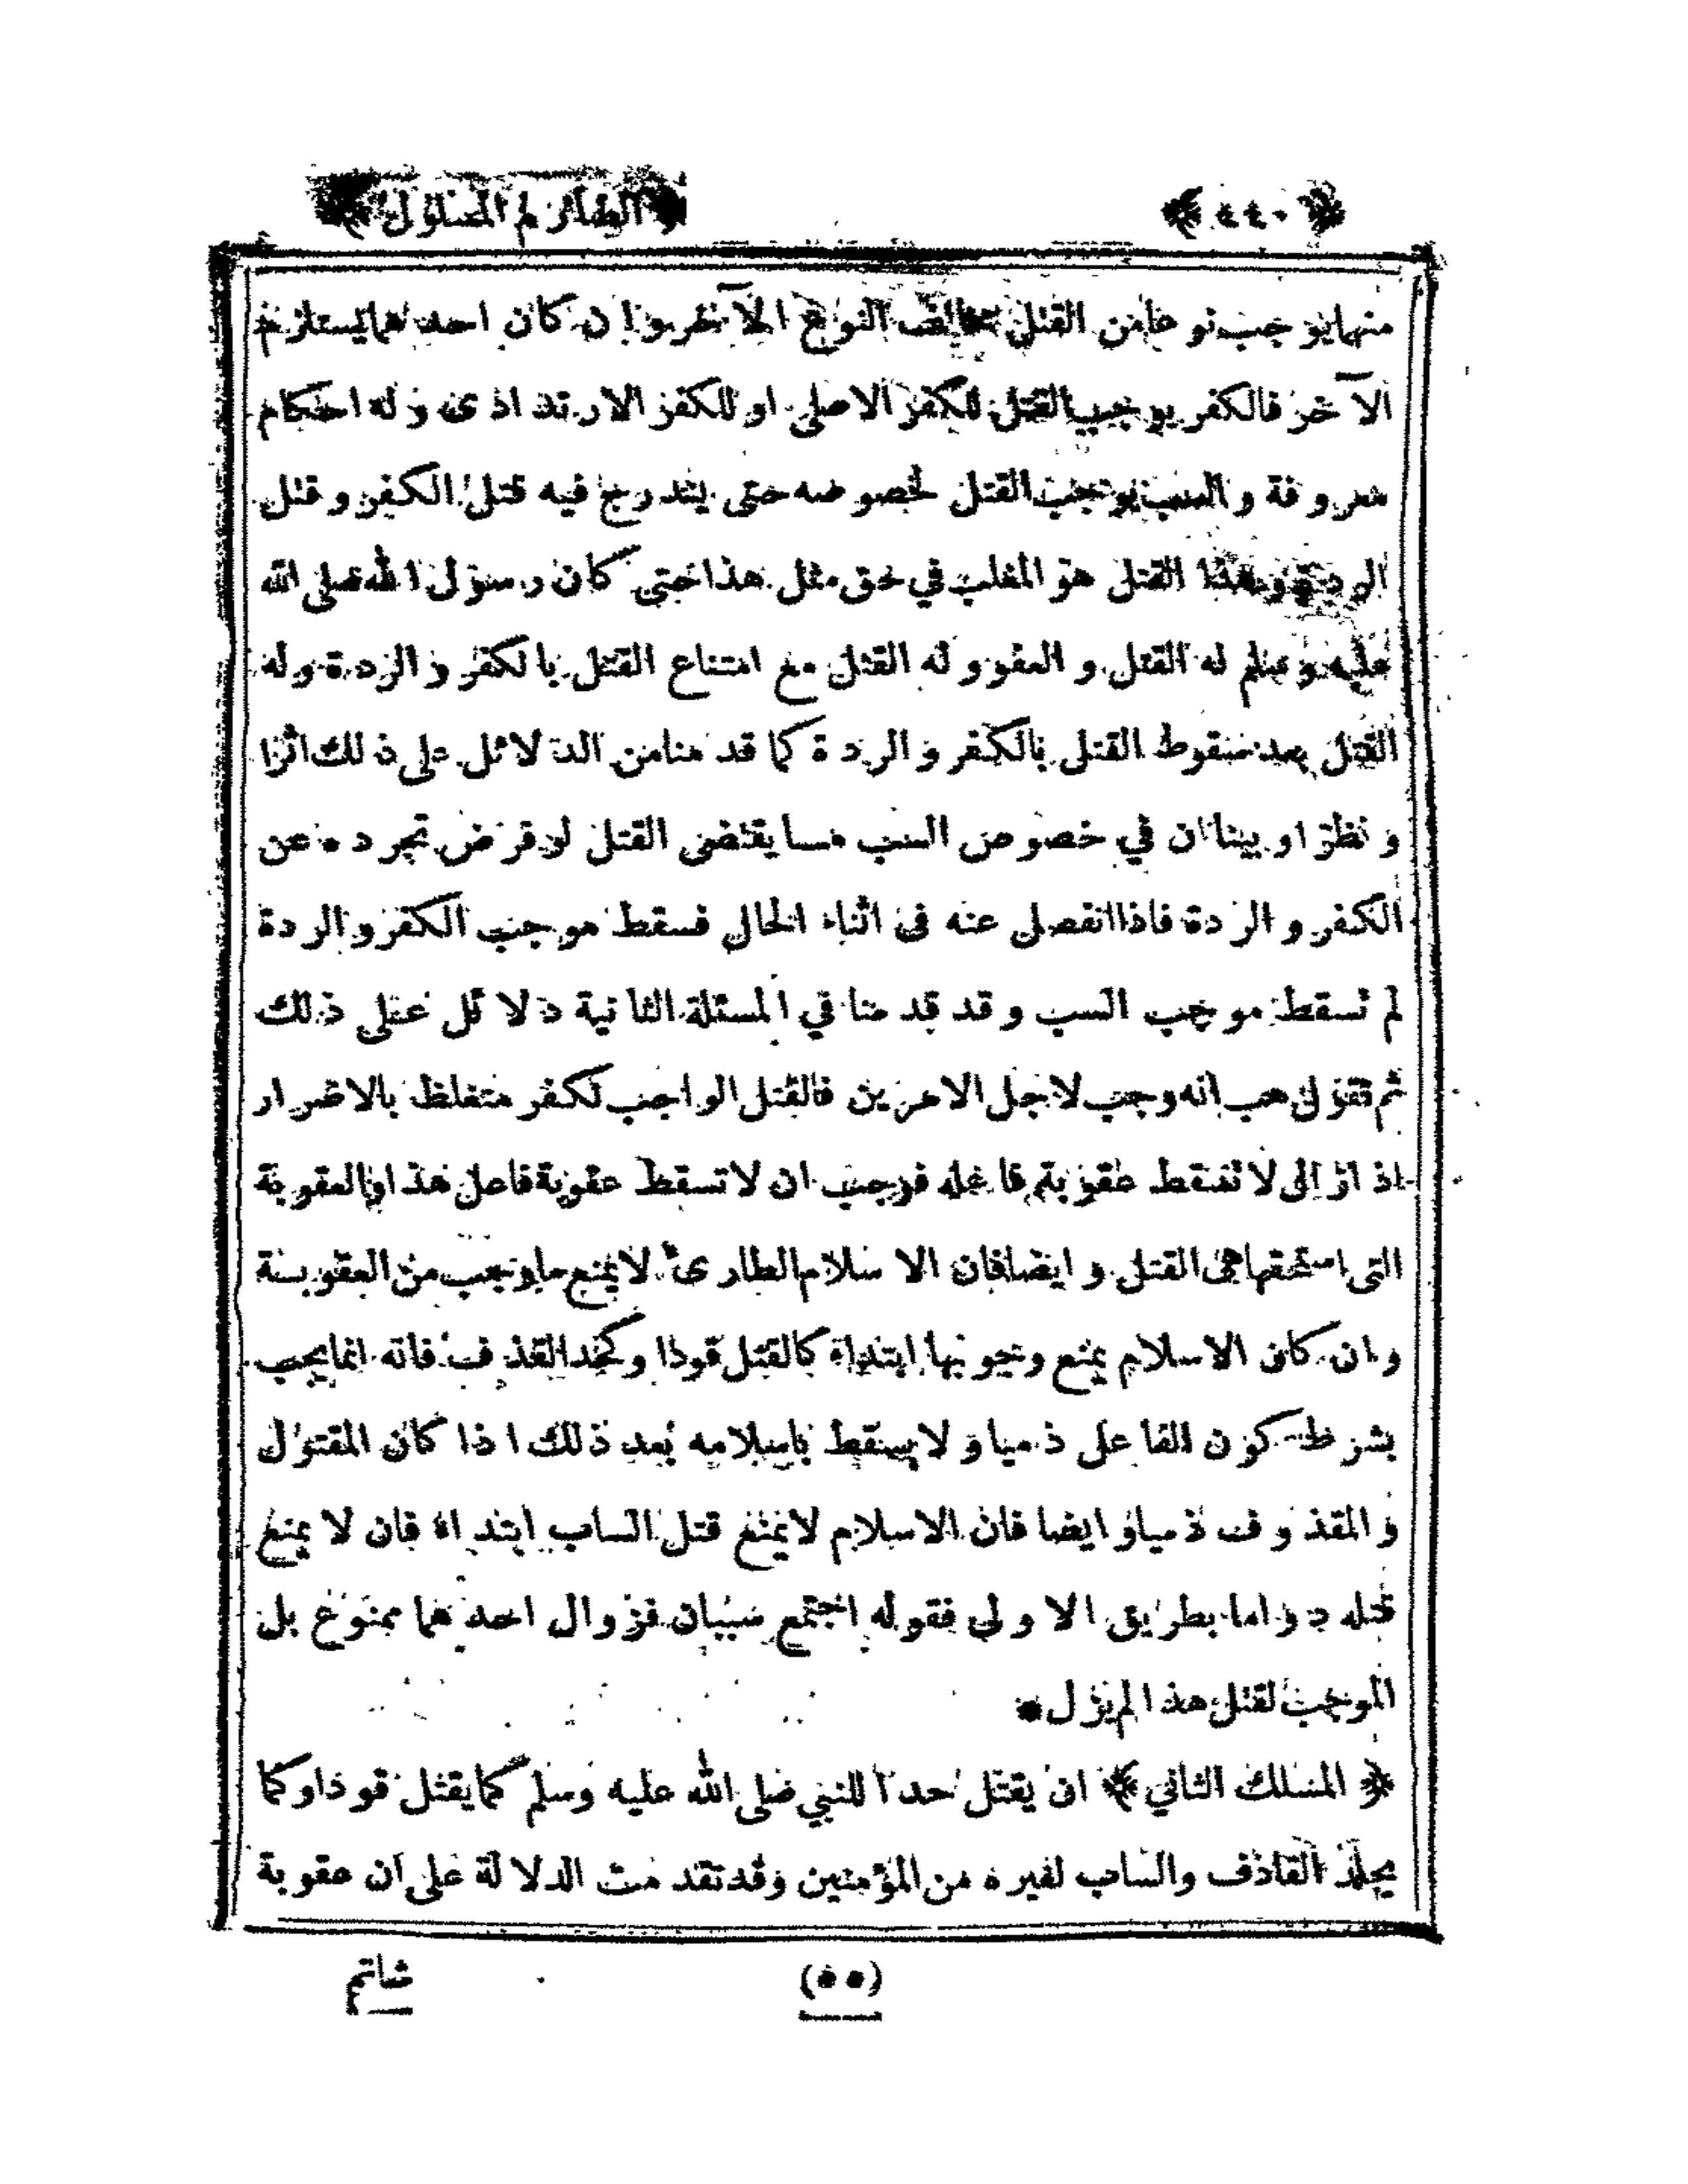 ﴿٤٤٠﴾ ﴿الصارم المسلول﴾
منهما يوجب نوعا من القتل يخالف النوع الآخر وان كان احدهما يستلزم
الآخر فالكفر يوجب القتل للكفر الاصلى او للكفر الارتدادى وله احكام
معروفة والسب يوجب القتل لخصوصه حتى يندرج فيه قتل الكفر وقتل
الردة وهذا القتل هو المغلب في حق مثل هذا حتى كان رسول الله صلى الله
عليه وسلم له القتل والعفو وله القتل مع امتناع القتل بالكفر والردة وله
القتل بعد سقوط القتل بالكفر والردة كما قدمنا من الدلائل على ذلك اثرا
ونظرا وبينا ان في خصوص السب ما يقتضى القتل لو فرض تجرده عن
الكفر والردة فاذا انفصل عنه فى اثناء الحال فسقط موجب الكفر والردة
لم تسقط موجب السب وقد قدمنا في المسئلة الثانية دلائل على ذلك
ثم نقول هب انه وجب لاجل الامرين فالقتل الواجب لكفر متغلظ بالاضرار
اذا زال لا تسقط عقوبة فاعله فوجب ان لا تسقط عقوبة فاعل هذا والعقوبة
التى استحقها هى القتل وايضا فان الاسلام الطارئ لا يمنع ما وجب من العقوبة
وان كان الاسلام يمنع وجوبها ابتداء كالقتل قودا وكحد القذف فانه انما يجب
بشرط كون الفاعل ذميا ولا يسقط باسلامه بعد ذلك اذا كان المقتول
والمقذوف ذميا وايضا فان الاسلام لا يمنع قتل الساب ابتداء فان لا يمنع
قتله دواما بطريق الاولى فقوله اجتمع سببان فزوال احدهما ممنوع بل
الموجب لقتل هذا لم يزل *
﴿المسلك الثاني﴾ ان يقتل حدا للنبي صلى الله عليه وسلم كما يقتل قودا وكما
يجلد القاذف والساب لغيره من المؤمنين وقد تقدمت الدلالة على ان عقوبة
(٥٥) شاتم